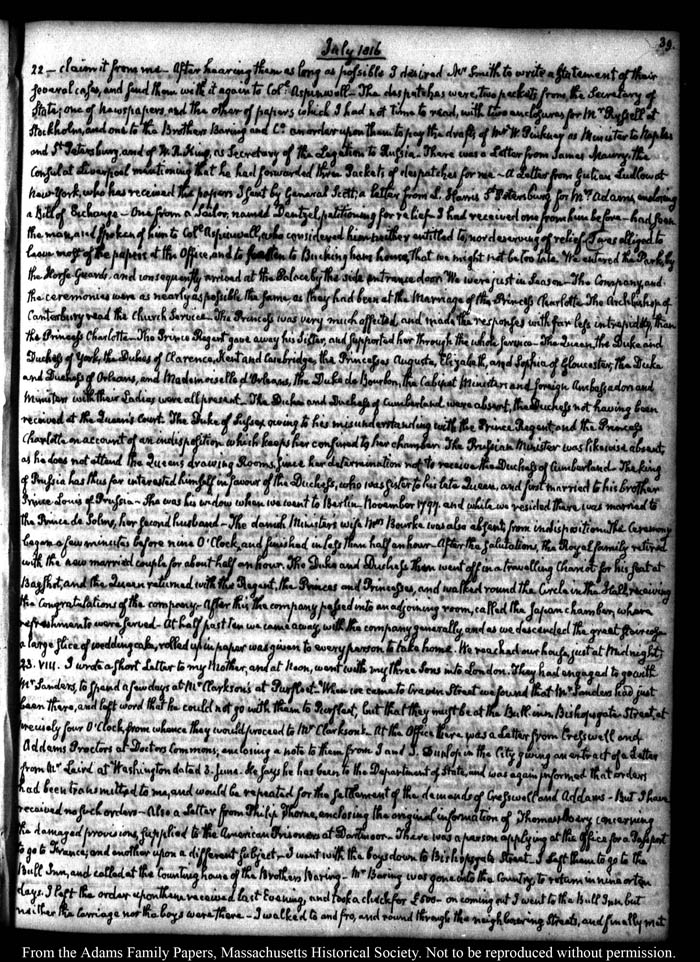 39.
July 1816
22 — claim it from me — After hearing them as long as possible I desired Mr Smith to write a statement of their
several cases, and send them with it again to Coll. Aspinwall — The despatches were, two packets from the Secretary of
State; one of Newspapers, and the other of papers which I had not time to read, with two enclosures for Mr Russell at
Stockholm, and one to the Brothers Baring and Co. an order upon them to pay the drafts of Mr W. Pinkney as Minister to Naples
and St Petersburg, and of W. R. King, as Secretary of the Legation to Russia. There was a Letter from James Maury, the
Consul at Liverpool mentioning that he had forwarded three Packets of despatches for me — A Letter from Gulian Ludlow at
New-York, who has received the papers I sent by General Scott; a Letter from L. Harris St Petersburg for Mrs Adams, enclosing
a Bill of Exchange — One from a Sailor, named Dentzel, petitioning for relief. I had received one from him before — had seen
the man, and spoken of him to Coll. Aspinwall, who considered him neither entitled to, nor deserving of relief. I was obliged to
leave most of the papers at the Office, and to hasten to Buckingham house, that we might not be too late. We entered the Park, by
the Horse Guards, and consequently arrived at the Palace by the side entrance door. We were just in Season — The Company, and
the ceremonies were as nearly as possible the same, as they had been at the Marriage of the Princess Charlotte. The Archbishop of
Canterbury read the Church Service — The Princess was very much affected, and made the responses with far less intrepidity, than
the Princess Charlotte — The Prince Regent gave away his Sister, and supported her through the whole service — The Queen, the Duke and
Duchess of York, the Dukes of Clarence, Kent and Cambridge, the Princesses Augusta, Elizabeth, and Sophia of Gloucester, the Duke
and Duchess of Orleans, and Mademoiselle d'Orleans, the Duke de Bourbon, the Cabinet Ministers and foreign Ambassadors and
Ministers with their Ladies were all present — The Duke and Duchess of Cumberland were absent, the Duchess not having been
received at the Queen's Court. The Duke of Sussex owing to his misunderstanding with the Prince Regent, and the Princess
Charlotte on account of an indisposition which keeps her confined to her chamber. The Prussian Minister was likewise absent,
as he does not attend the Queens drawing Rooms, since her determination not to receive the Duchess of Cumberland — The king
of Prussia has thus far interested himself in favour of the Duchess, who was sister to his late Queen, and first married to his brother
Prince Louis of Prussia — She was his widow when we went to Berlin November 1797. and while we resided there was married to
the Prince de Solms, her second husband — The danish Ministers wife Mrs Bourke was also absent from indisposition. The Ceremony
began a few minutes before nine O'Clock, and finished in less than half an hour — After the salutations, the Royal family retired
with the new married couple for about half an hour. The Duke and Duchess then went off in a travelling Chariot for his seat at
Bagshot, and the Queen returned with the Regent, the Princes and Princesses, and walked round the Circle in the Hall, receiving
the Congratulations of the company — After this the company passed into an adjoining room, called the Japan chamber, where
refreshments were served — At half past ten we came away, with the company generally, and as we descended the great staircase
a large slice of wedding cake, rolled up in paper was given to every person to take home. We reached our house, just at Midnight.
23. VIII. I wrote a short Letter to my Mother, and at Noon, went with my three Sons into London. They had engaged to go with
Mr Sanders, to spend a few days at Mr Clarkson's at Purfleet — When we came to Craven Street we found that Mr Sanders had just
been there, and left word that he could not go with them to Purfleet, but that they must be at the Bull-inn, Bishopsgate Street, at
precisely four O'Clock, from whence they would proceed to Mr Clarkson's. At the Office there was a Letter from Cresswell and
Addams Proctors at Doctors Commons; enclosing a note to them from J and J. Dunlop in the City giving an extract of a Letter
from Mr Laird at Washington dated 3. June. He says he has been to the Department of State, and was again informed that orders
had been transmitted to me, and would be repeated for the settlement of the demands of Cresswell and Addams — But I have
received no such orders — Also a Letter from Philip Thorne, enclosing the original information of Thomas Avery concerning
the damaged provisions, supplied to the American Prisoners at Dartmoor — There was a person applying at the Office for a Passport
to go to France; and another upon a different subject — I went with the boys down to Bishopsgate Street. I left them to go to the
Bull Inn, and called at the Counting house of the Brothers Baring — Mr Baring was gone into the Country, to return in nine or ten
days. I left the order upon them received last Evening, and took a check for £500 — on coming out I went to the Bull Inn, but
neither the carriage nor the boys were there — I walked to and fro, and round through the neighbouring Streets, and finally met
From the Adams Family Papers, Massachusetts Historical Society. Not to be reproduced without permission.